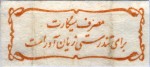 مصرف سیگارت
برای تندرستی زیان آور است